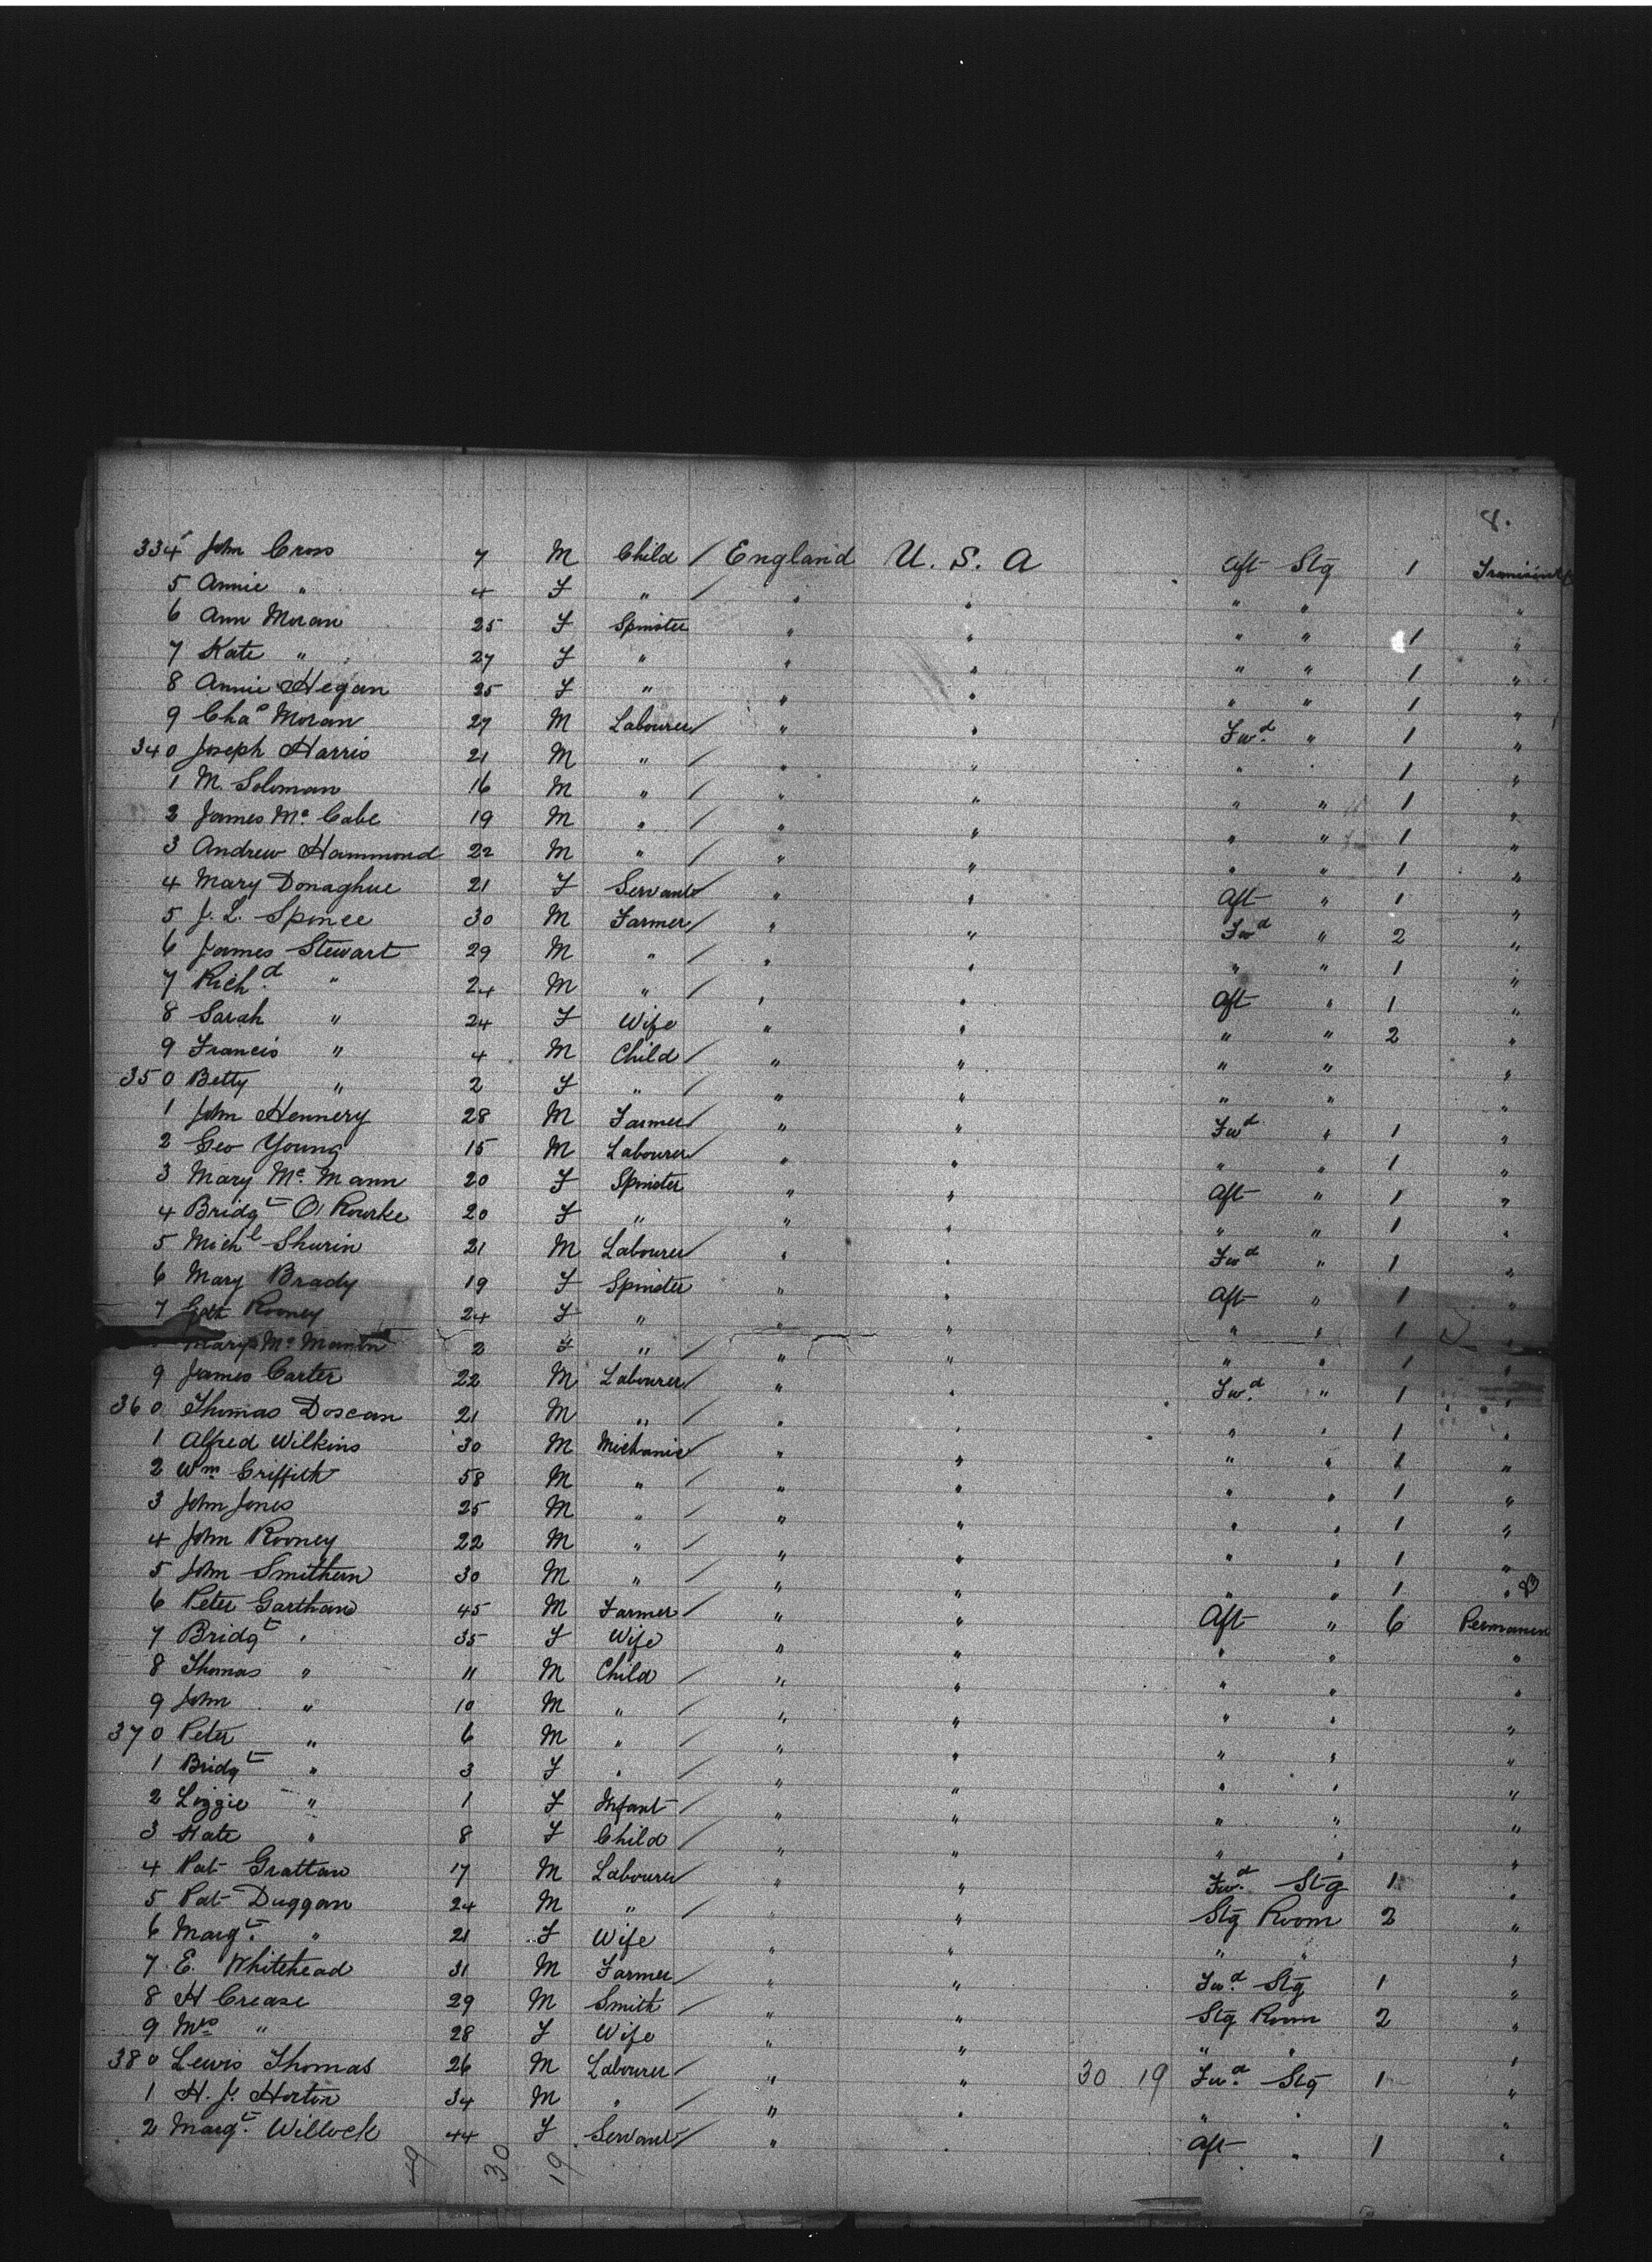 8.
334 John Cross 7 M Child / England U. S. A Aft Stg 1
5 Annie " 4 F " / " " " " "
6 Ann Moran 25 F Spinster " " " " 1 "
7 Kate " 27 F " " " " " 1 "
8 Annie Hegan 25 F " " " " " 1 "
9 Chas Moran 27 M Labourer / " " Fwd. " 1 "
340 Joseph Harris 21 M " / " " " " 1 "
1 M. Soloman 16 M " / " " " " 1 "
2 James Mc Cabe 19 M " / " " " " 1 "
3 Andrew Hammond 22 M " / " " " " 1 "
4 Mary Donaghue 21 F Servant / " " Aft " 1 "
5 J. L. Spence 30 M Farmer / " " Fwd " 2 "
6 James Stewart 29 M " / " " " " 1 "
7 Richd. " 24 M " / " " Aft " 1 "
8 Sarah " 24 F Wife " " " " 2 "
9 Francis " 4 M Child / " " " " "
350 Betty " 2 F " / " " " " "
1 John Hennery 28 M Farmer / " " Fwd " 1 "
2 Geo Young 15 M Labourer / " " " " 1 "
3 Mary Mc Mann 20 F Spinster " " Aft " 1 "
4 Bridgt O'Rourke 20 F " " " " " 1 "
5 Michl Shurin 21 M Labourer / " " Fwd " 1 "
6 Mary Brady 19 F Spinster " " Aft " 1 "
7 Rooney 24 F " " " " " 1 "
Mary Mc Mann 2 F " / " " " " 1 "
9 James Carter 22 M Labourer / " " Fwd. " 1 "
360 Thomas Doscan 21 M " / " " " " 1 "
1 Alfred Wilkins 30 M Michanic / " " " " 1 "
2 Wm Griffith 58 M " / " " " " 1 "
3 John Jones 25 M " / " " " " 1 "
4 John Rooney 22 M " / " " " " 1 "
5 John Smithern 30 M " / " " " " 1 "
6 Peter Garthan 45 M Farmer / " " Aft " 6 Permanen
7 Bridgt " 35 F Wife " " " " "
8 Thomas " 11 M Child / " " " " "
9 John " 10 M " / " " " " "
370 Peter " 6 M " / " " " " "
1 Bridgt " 3 F " / " " " " "
2 Lizzie " 1 F Infant / " " " " "
3 Kate " 8 F Child / " " " " "
4 Pat Grattan 17 M Labourer / " " Fwd. Stg 1 "
5 Pat Duggan 24 M " / " " Stg Room 2 "
6 Margt. " 21 F Wife " " " " "
7 E. Whitehead 31 M Farmer / " " Fwd. Stg 1 "
8 H Crease 29 M Smith / " " Stg Room 2 "
9 Mrs " 28 F Wife " " " " "
380 Lewis Thomas 26 M Labourer / " " 30 19 Fwd. Stg 1 "
1 H. J. Horton 34 M " / " " " " "
2 Margt. Willock 44 F Servant / " " Aft " 1 "
49 30 19